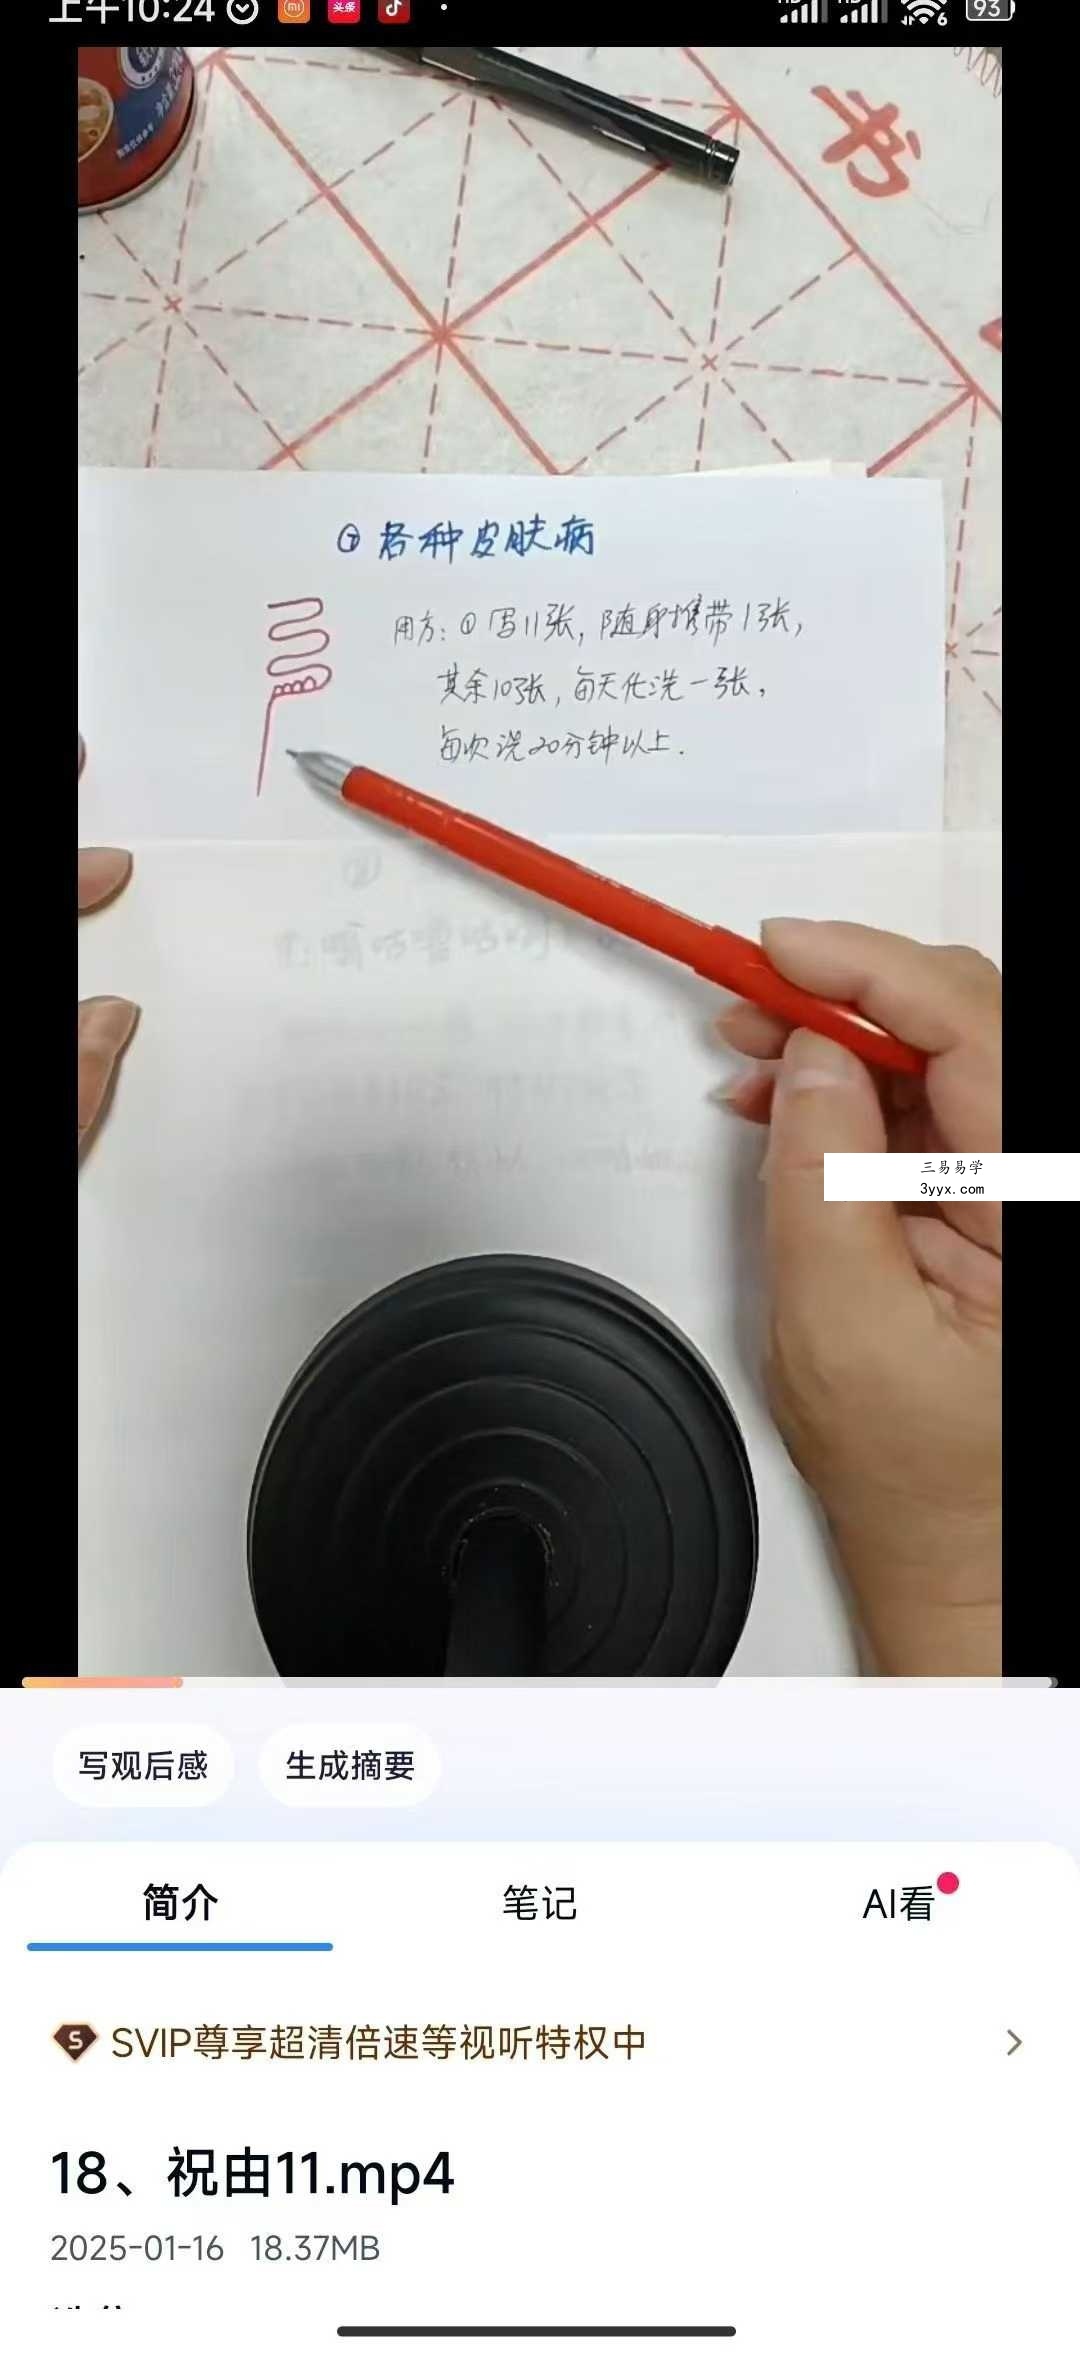 上午10:24
头条
93
书
⑦ 各种皮肤病
用方：① 写11张，随身携带1张，
其余10张，每天化洗一张，
每次洗20分钟以上．
三易易学
3yyx.com
写观后感
生成摘要
简介
笔记
AI看
SVIP尊享超清倍速等视听特权中
18、祝由11.mp4
2025-01-16 18.37MB